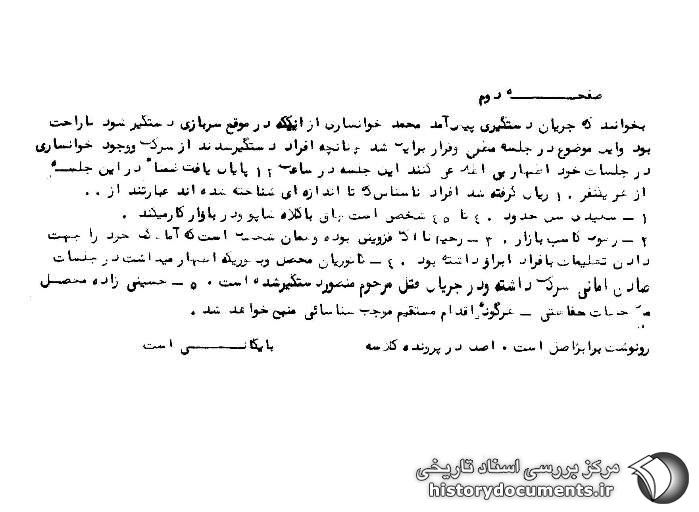 صفحـــــه دوم
بخوانند که جریان دستگیری پیش آمد محمد خوانساری از اینکه در موقع سربازی دستگیر شود ناراحت
بود واین موضوع در جلسه مطرح وقرار براین شد چنانچه افراد دستگیرشدند از شرکت ووجود خوانساری
در جلسات خود اظهار بی اطلاعی کنند این جلسه در ساعت پایان یافت ضمناً در این جلســه
از هر یکنفر ۱۰ ریال گرفته شد افراد ناشناس که تا اندازه ای شناخته شده اند عبارتند از ..
۱ــ سعیدی سن حدود ۴۰ تا ۴۵ شخص است چاق باکلاه شاپو ودر بازار کارمیکند .
۲ــ کاسب بازار . ۳ــ قزوینی بوده وهمان شخصی است که آمادگی خود را جهت
دادن تعلیمات بافراد ابراز داشته بود . ۴ــ محصل وبطوریکه اظهار میداشت در جلسات
صادق امانی شرکت داشته ودر جریان قتل مرحوم منصور دستگیرشده است . ۵ــ حسینی زاده محصل
حفاظتی ــ هرگونه اقدام مستقیم موجب شناسائی منبع خواهد شد .
رونوشت برابر اصل است . اصل در پرونده کلاسه بایگانــــــی است
مرکز بررسی اسناد تاریخی
historydocuments.ir